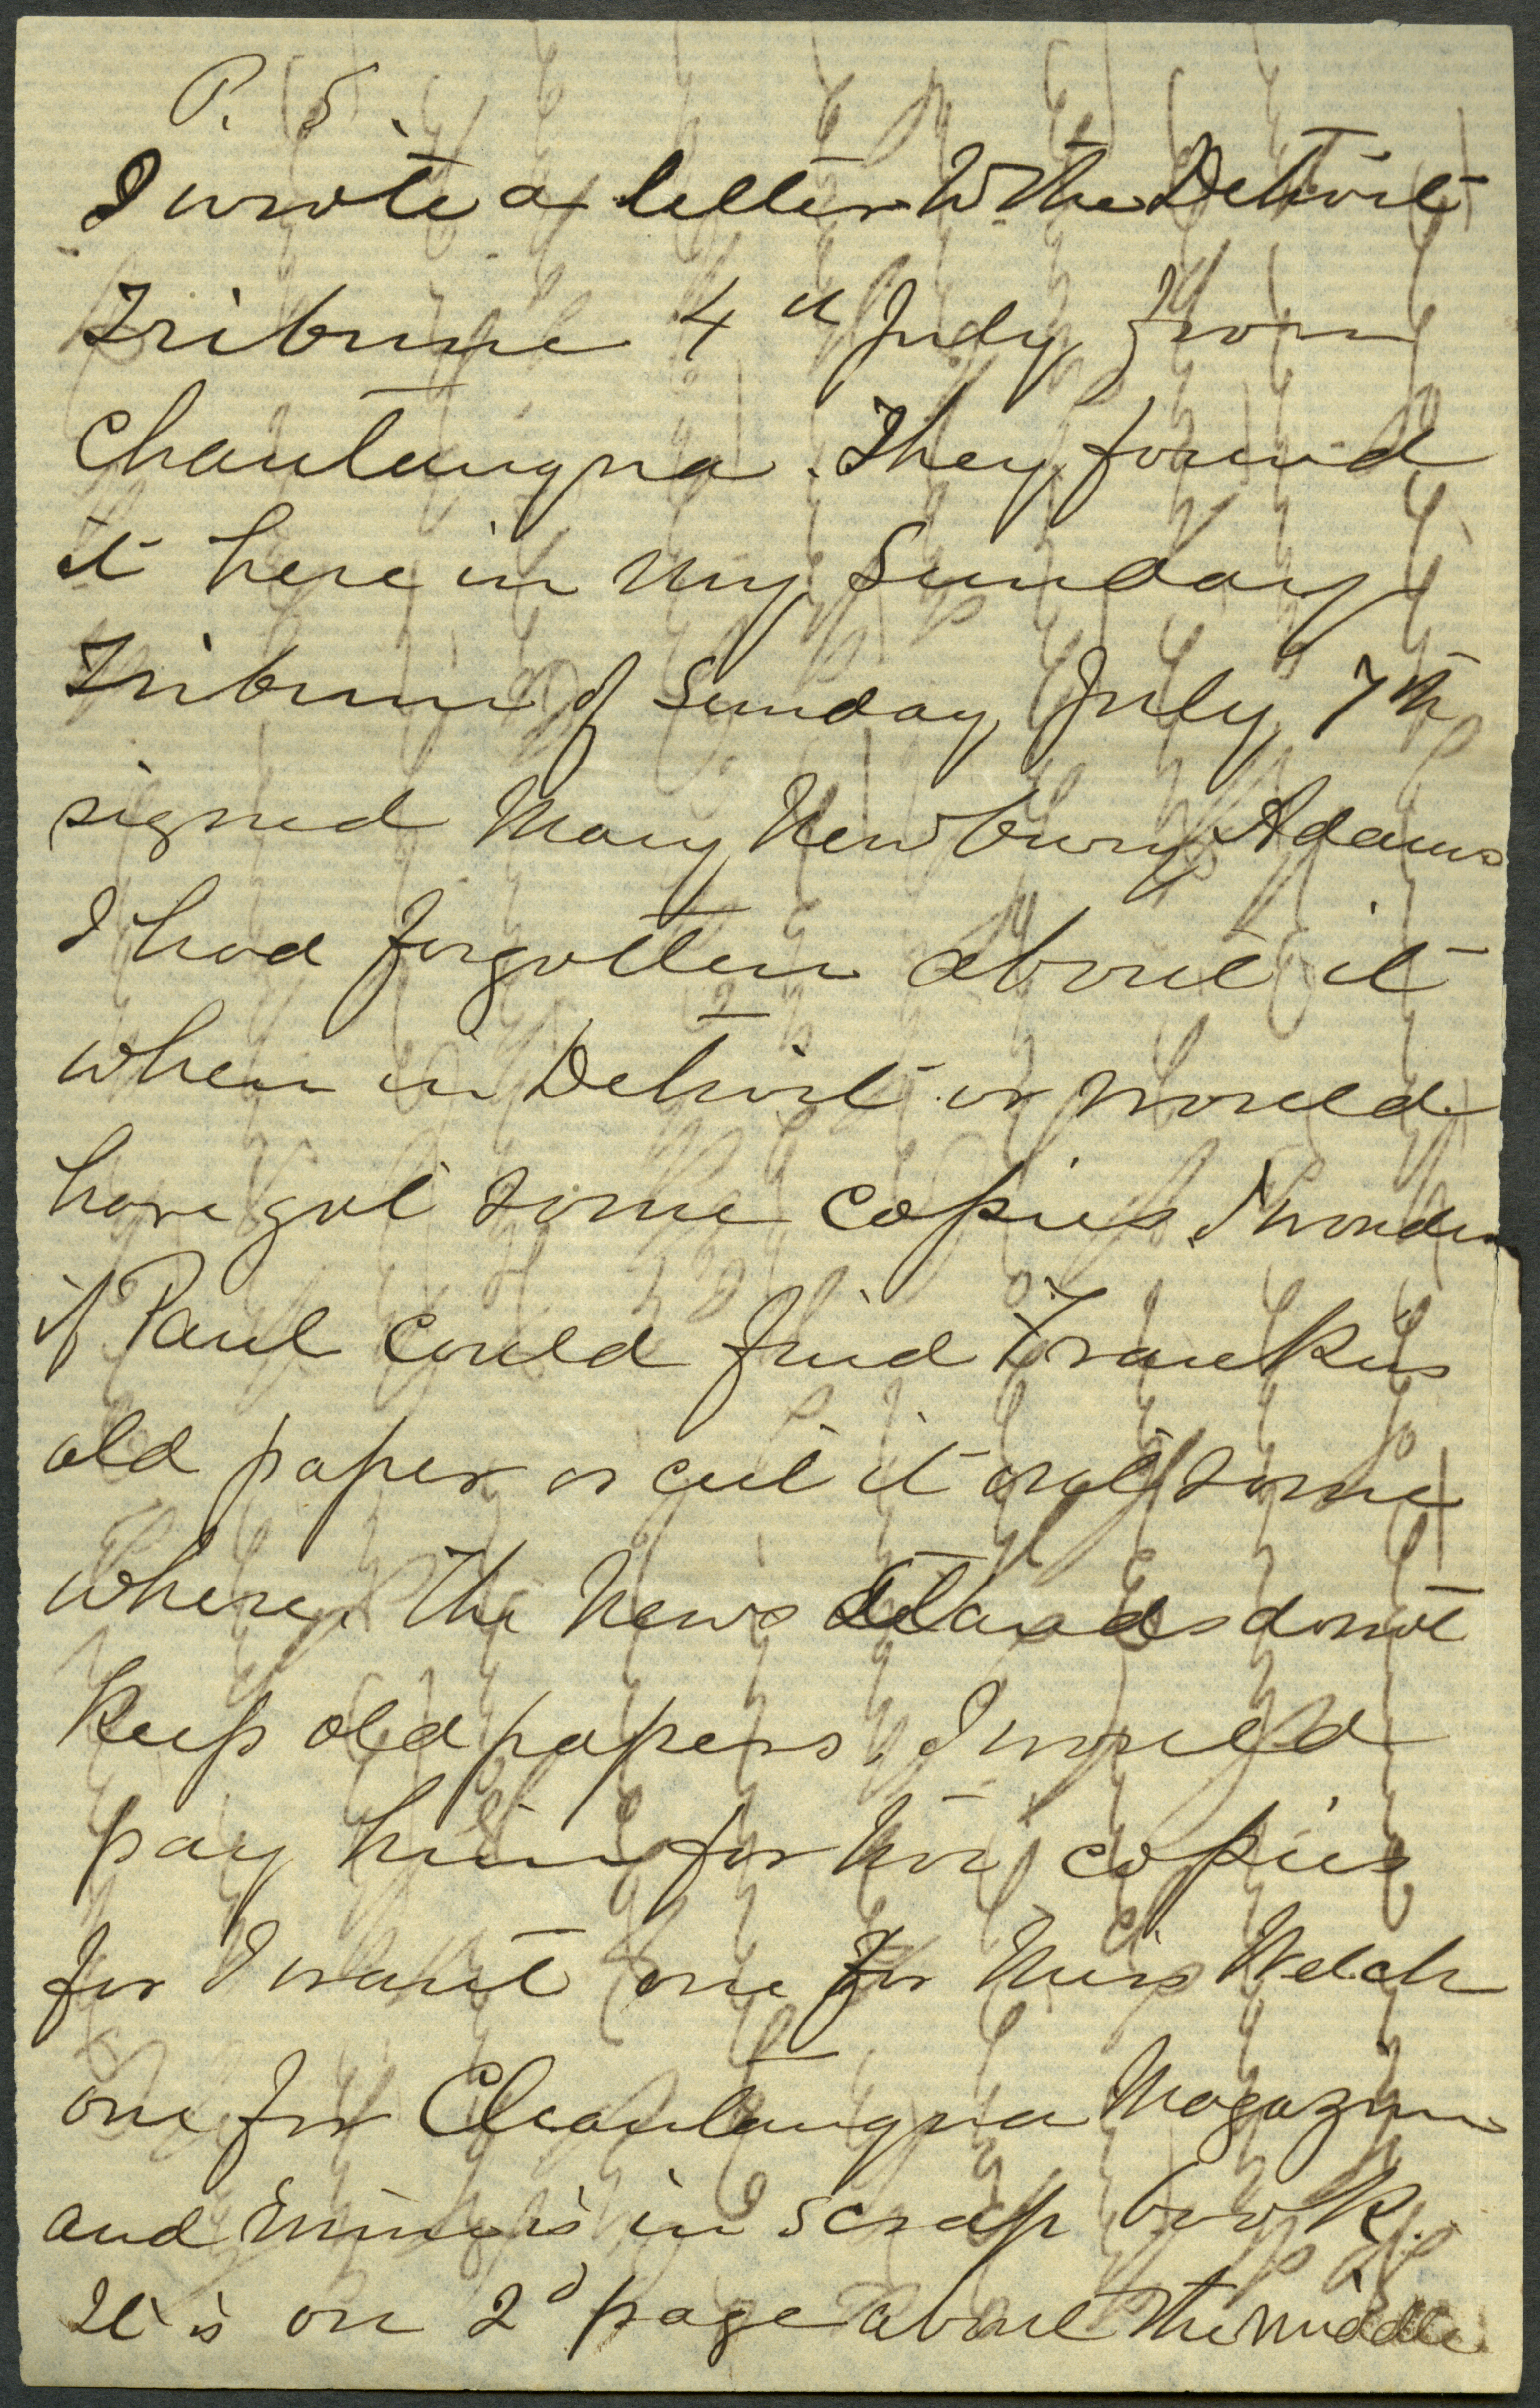 P. S.
I wrote a letter to the Detroit
Tribune 4th July from
Chautauqua. They found
it here in my Sunday
Tribune of Sunday July 7th
signed Mary Newbury Adams
I had forgotten about it
when in Detroit or would
have got some copies. I wonder
if Paul could find Frankies
old paper or cut it out some
where. The News Stands do not
keep old papers. I would
pay him for two copies
for I want one for Miss Welch
one for Chautauqua Magazine
and mine is in scrap book.
It is on 2d page about the middle